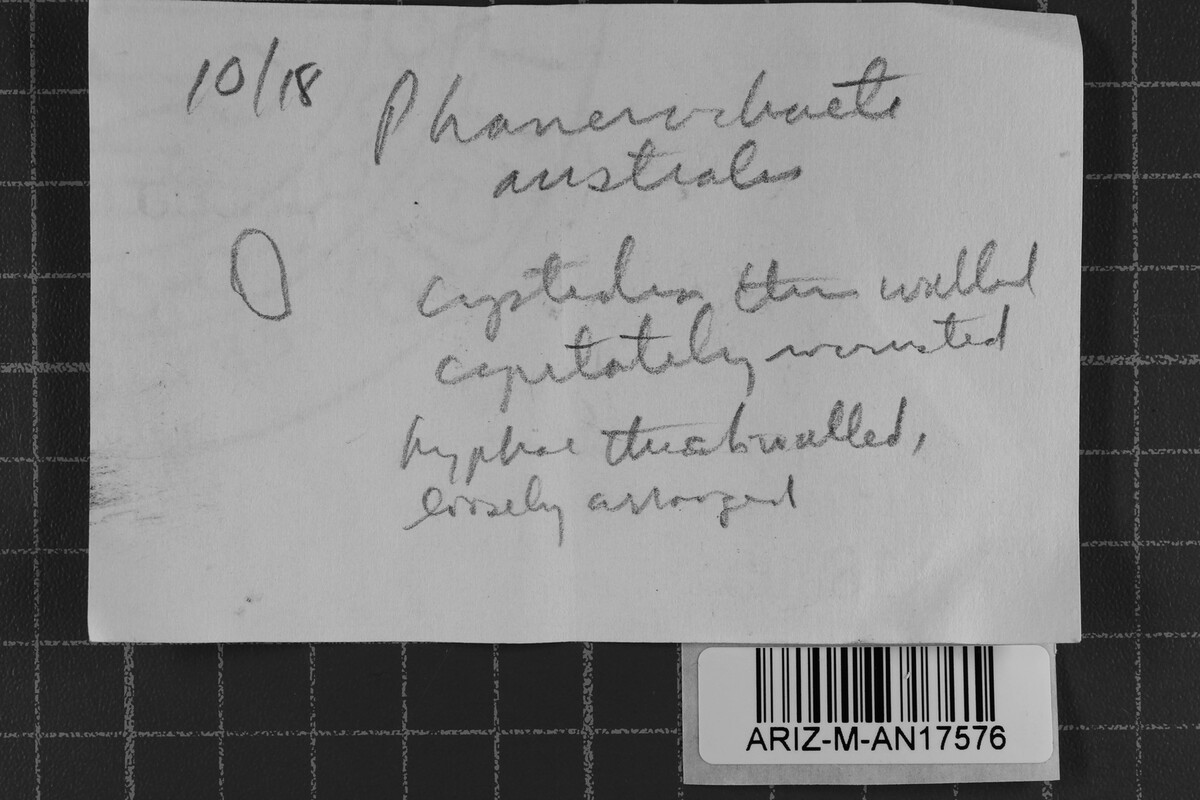 10/18
Phanerochaete
australis
cystidia thin walled
capitately incrusted
hyphae thick walled,
loosely arranged
ARIZ-M-AN17576